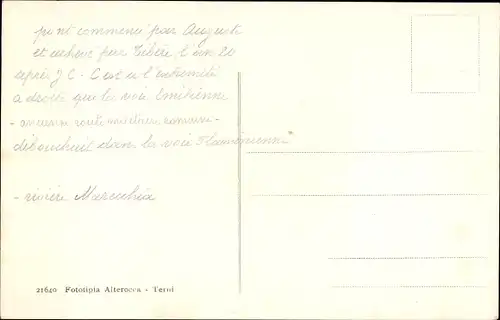 pont commencé par Auguste
et achevé par Tibère l'an 20
après J C - C'est à l'extrémité
a droite que la voie Emilienne
- ancienne route militaire romaine -
débouchait dans la voie Flaminienne
- rivière Marecchia
21640 Fototipia Alterocca - Terni